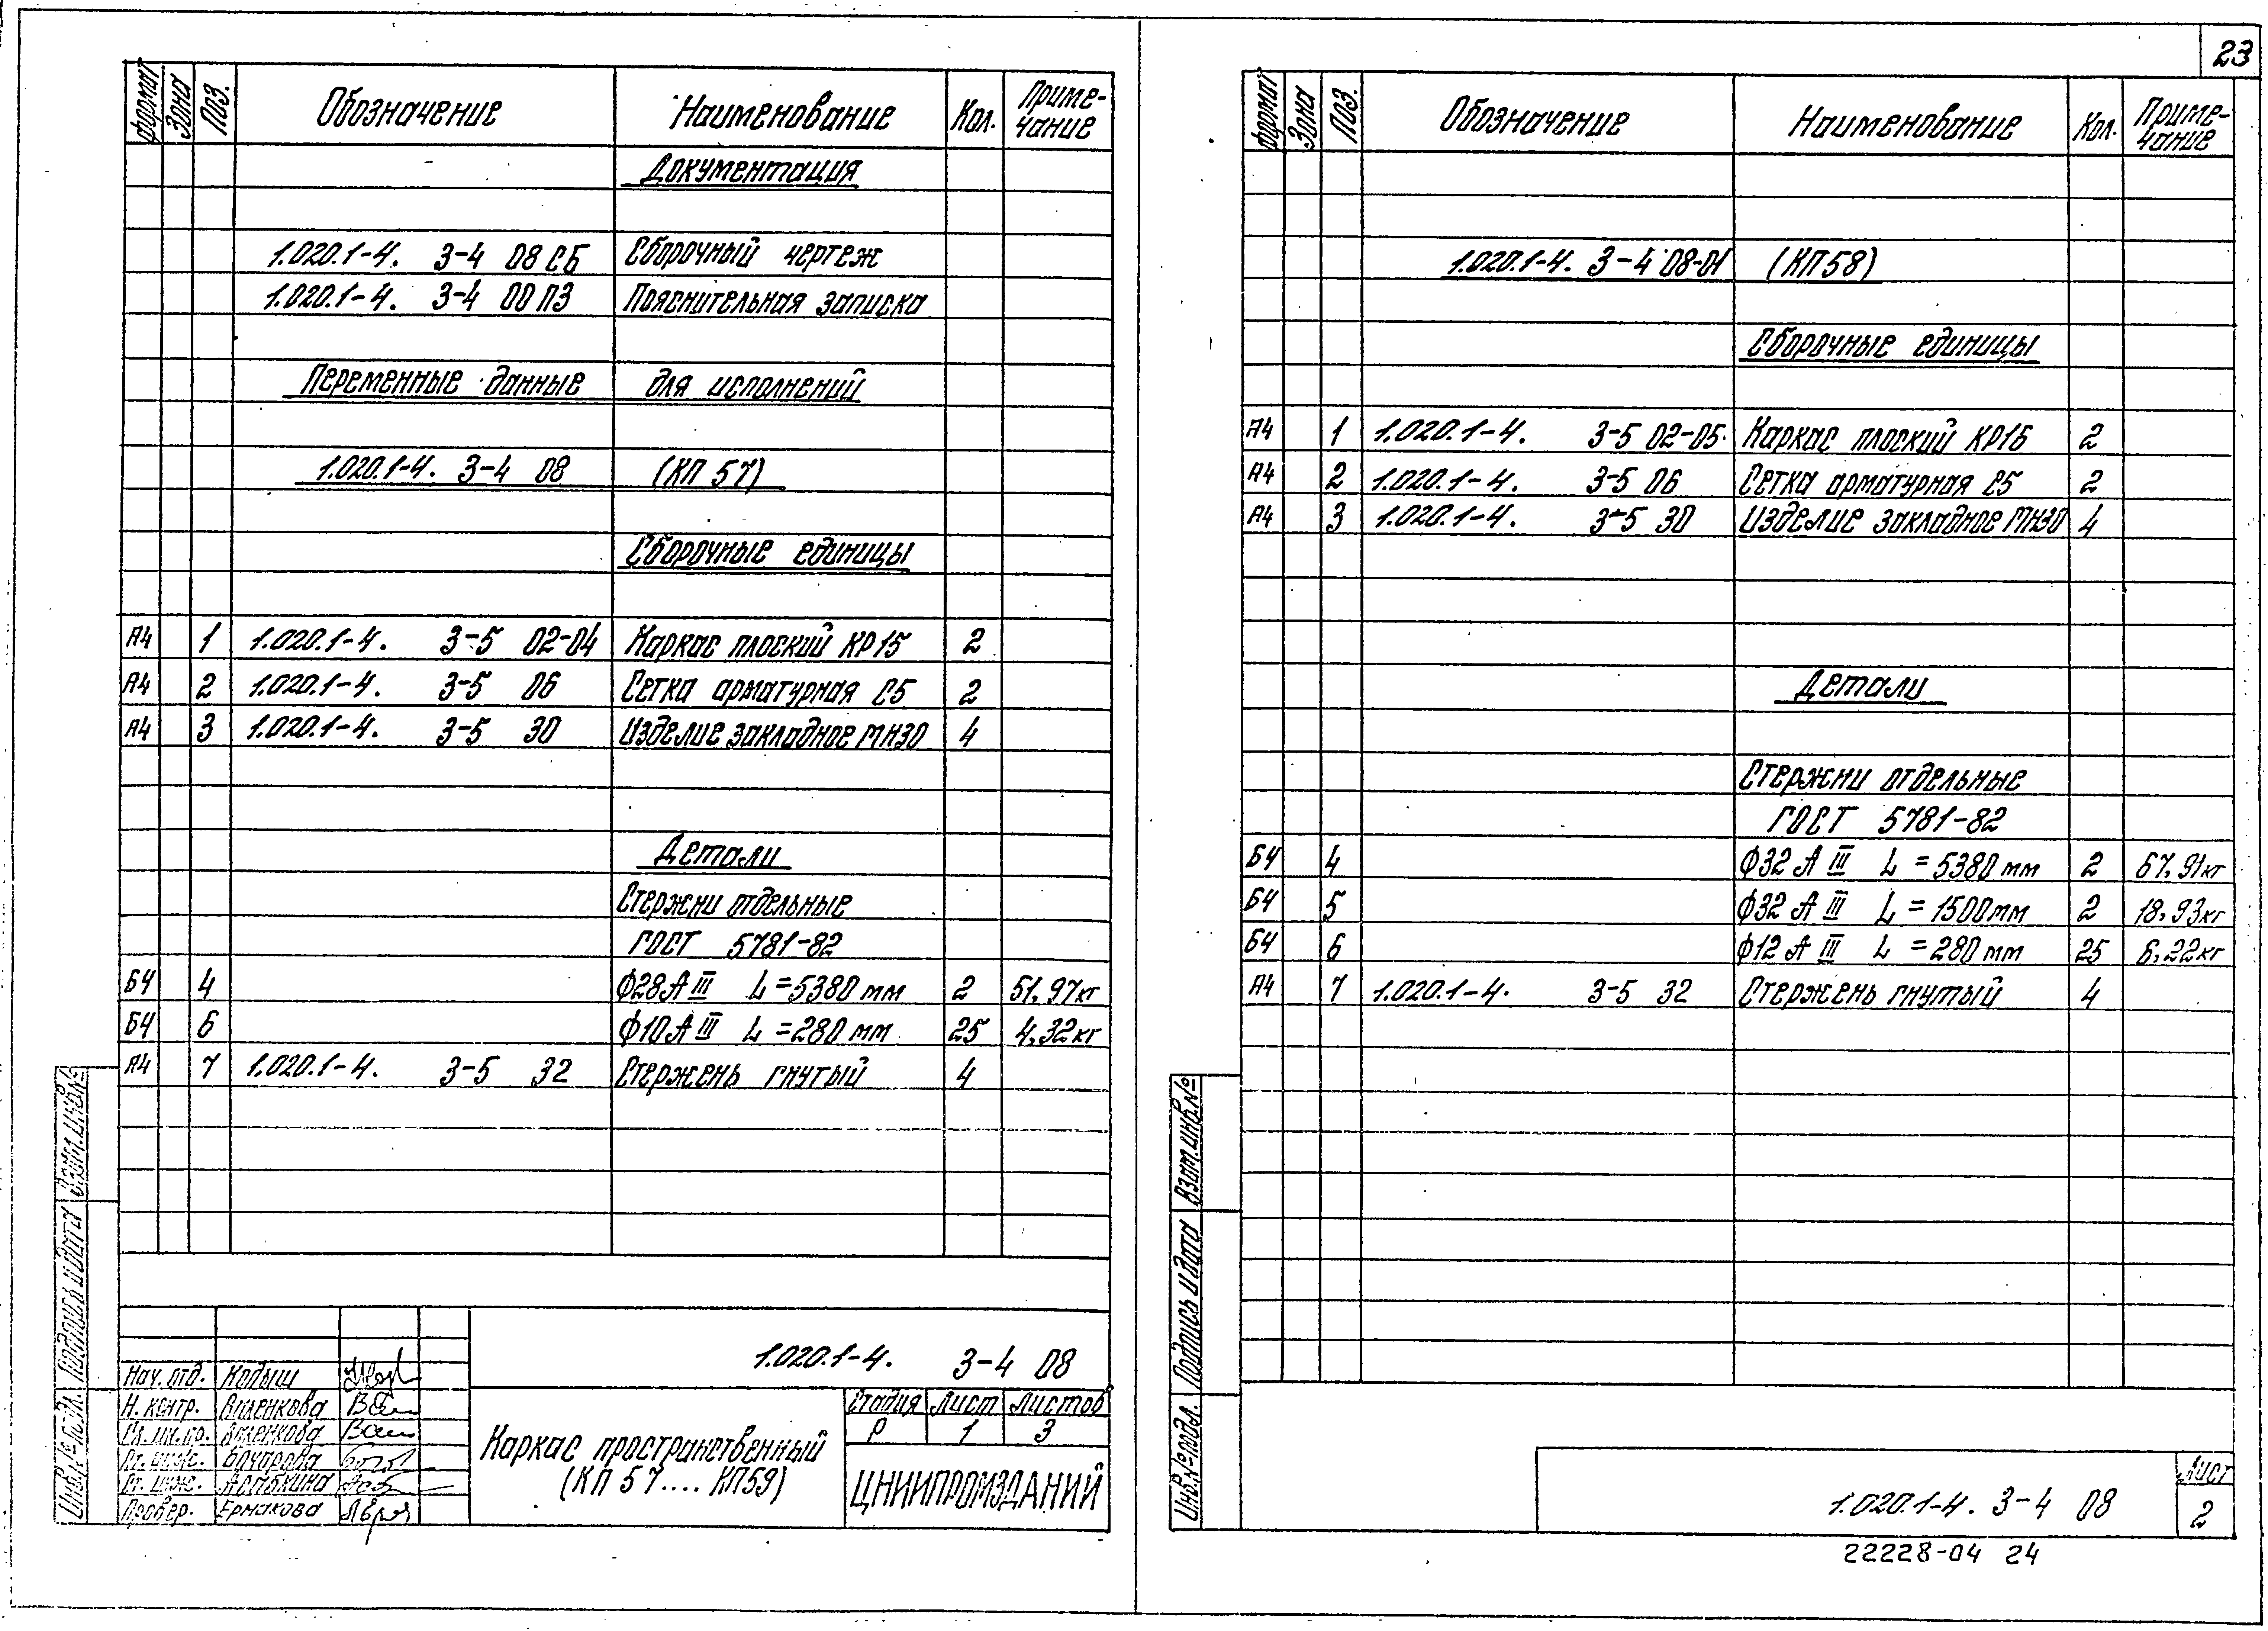 23
Формат Зона Поз. Обозначение Наименование Кол. Приме-
чание
Документация
1.020.1-4. 3-4 08 СБ Сборочный чертеж
1.020.1-4. 3-4 00 ПЗ Пояснительная записка
Переменные данные для исполнений
1.020.1-4. 3-4 08 (КП 57)
Сборочные единицы
А4 1 1.020.1-4. 3-5 02-04 Каркас плоский КР15 2
А4 2 1.020.1-4. 3-5 06 Сетка арматурная С5 2
А4 3 1.020.1-4. 3-5 30 Изделие закладное МН30 4
Детали
Стержни отдельные
ГОСТ 5781-82
БЧ 4 Ф28АIII L=5380 мм 2 51,97кг
БЧ 6 Ф10АIII L=280 мм 25 4,32кг
А4 7 1.020.1-4. 3-5 32 Стержень гнутый 4
Инв.№ подл. Подпись и дата Взам.инв.№
1.020.1-4. 3-4 08
Нач. отд. Кодыш
Н. контр. Виленкова
Гл. инж.пр. Виленкова
Ст. инж.
Ст. инж.
Провер. Ермакова
Каркас пространственный
(КП 57.... КП59)
Стадия Лист Листов
Р 1 3
ЦНИИПРОМЗДАНИЙ
Формат Зона Поз. Обозначение Наименование Кол. Приме-
чание
1.020.1-4. 3-4 08-01 (КП58)
Сборочные единицы
А4 1 1.020.1-4. 3-5 02-05 Каркас плоский КР16 2
А4 2 1.020.1-4. 3-5 06 Сетка арматурная С5 2
А4 3 1.020.1-4. 3-5 30 Изделие закладное МН30 4
Детали
Стержни отдельные
ГОСТ 5781-82
БЧ 4 Ф32 АIII L=5380 мм 2 67,91кг
БЧ 5 Ф32 АIII L=1500мм 2 18,93кг
БЧ 6 Ф12 АIII L=280 мм 25 6,22кг
А4 7 1.020.1-4. 3-5 32 Стержень гнутый 4
Инв.№подл. Подпись и дата Взам.инв.№
1.020.1-4. 3-4 08
Лист
2
22228-04 24